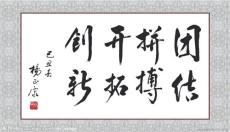 团结
拼搏
开拓
创新
己丑春
杨正宗